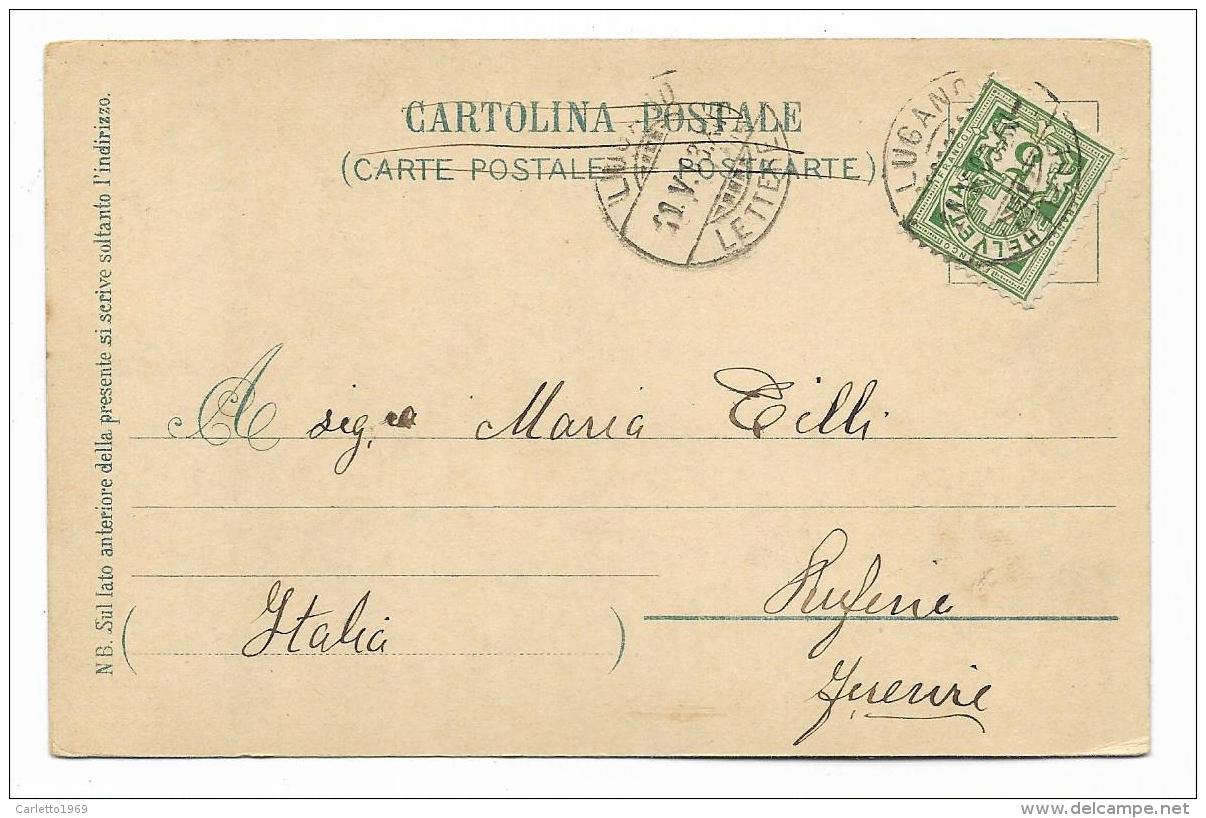 CARTOLINA POSTALE
(CARTE POSTALE - POSTKARTE)
LUGANO
LETTERE
LUGANO
FRANCO
HELVETIA
A sig.ra Maria Tilli
Rufina
Firenze
(Italia)
NB. Sul lato anteriore della presente si scrive soltanto l'indirizzo.
Carletto1969
delcampe.net